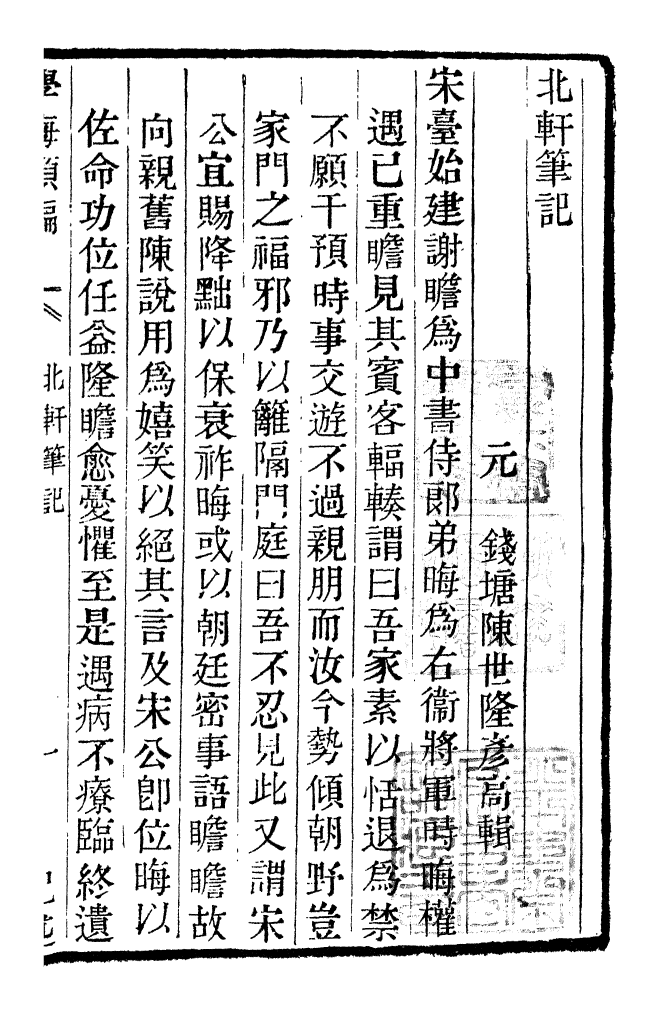 北軒筆記
元　錢塘陳世隆彦高輯
宋臺始建謝瞻爲中書侍郎弟晦爲右衞將軍時晦權
遇已重瞻見其賓客輻輳謂曰吾家素以恬退爲業
不願干預時事交遊不過親朋而汝今勢傾朝野豈
家門之福邪乃以籬隔門庭曰吾不忍見此又謂宋
公宜賜降黜以保衰祚晦或以朝廷密事語瞻瞻故
向親舊陳說用爲嬉笑以絕其言及宋公卽位晦以
佐命功位任益隆瞻愈憂懼至是遇病不療臨終遺
學海類編
北軒筆記
一